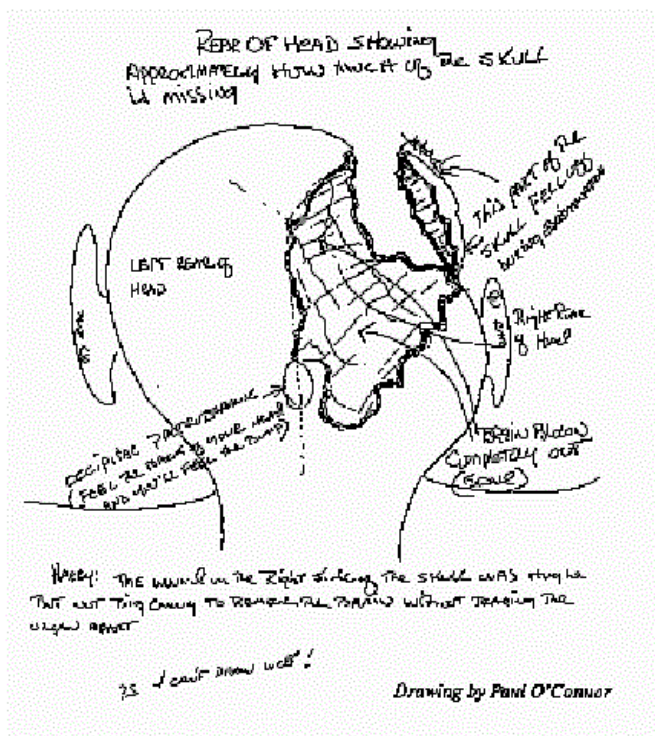 REAR OF HEAD SHOWING
APPROXIMATELY HOW MUCH OF THE SKULL
IS MISSING
THIS PART OF THE
SKULL FELL OFF
DURING EXAMINATION
LEFT REAR OF
HEAD
EAR
EAR
Right Rear
of Head
OCCIPITAL PROTUBERANCE
FEEL THE BACK OF YOUR HEAD
AND YOU'LL FEEL THE BUMP
BRAIN BLOWN
COMPLETELY OUT
GONE
THE WOUND in the Right Side of THE SKULL WAS Huge
BUT NOT BIG ENOUGH TO REMOVE THE BRAIN WITHOUT TEARING THE
ORGAN APART
PS I CAN'T DRAW WELL!
Drawing by Paul O'Connor